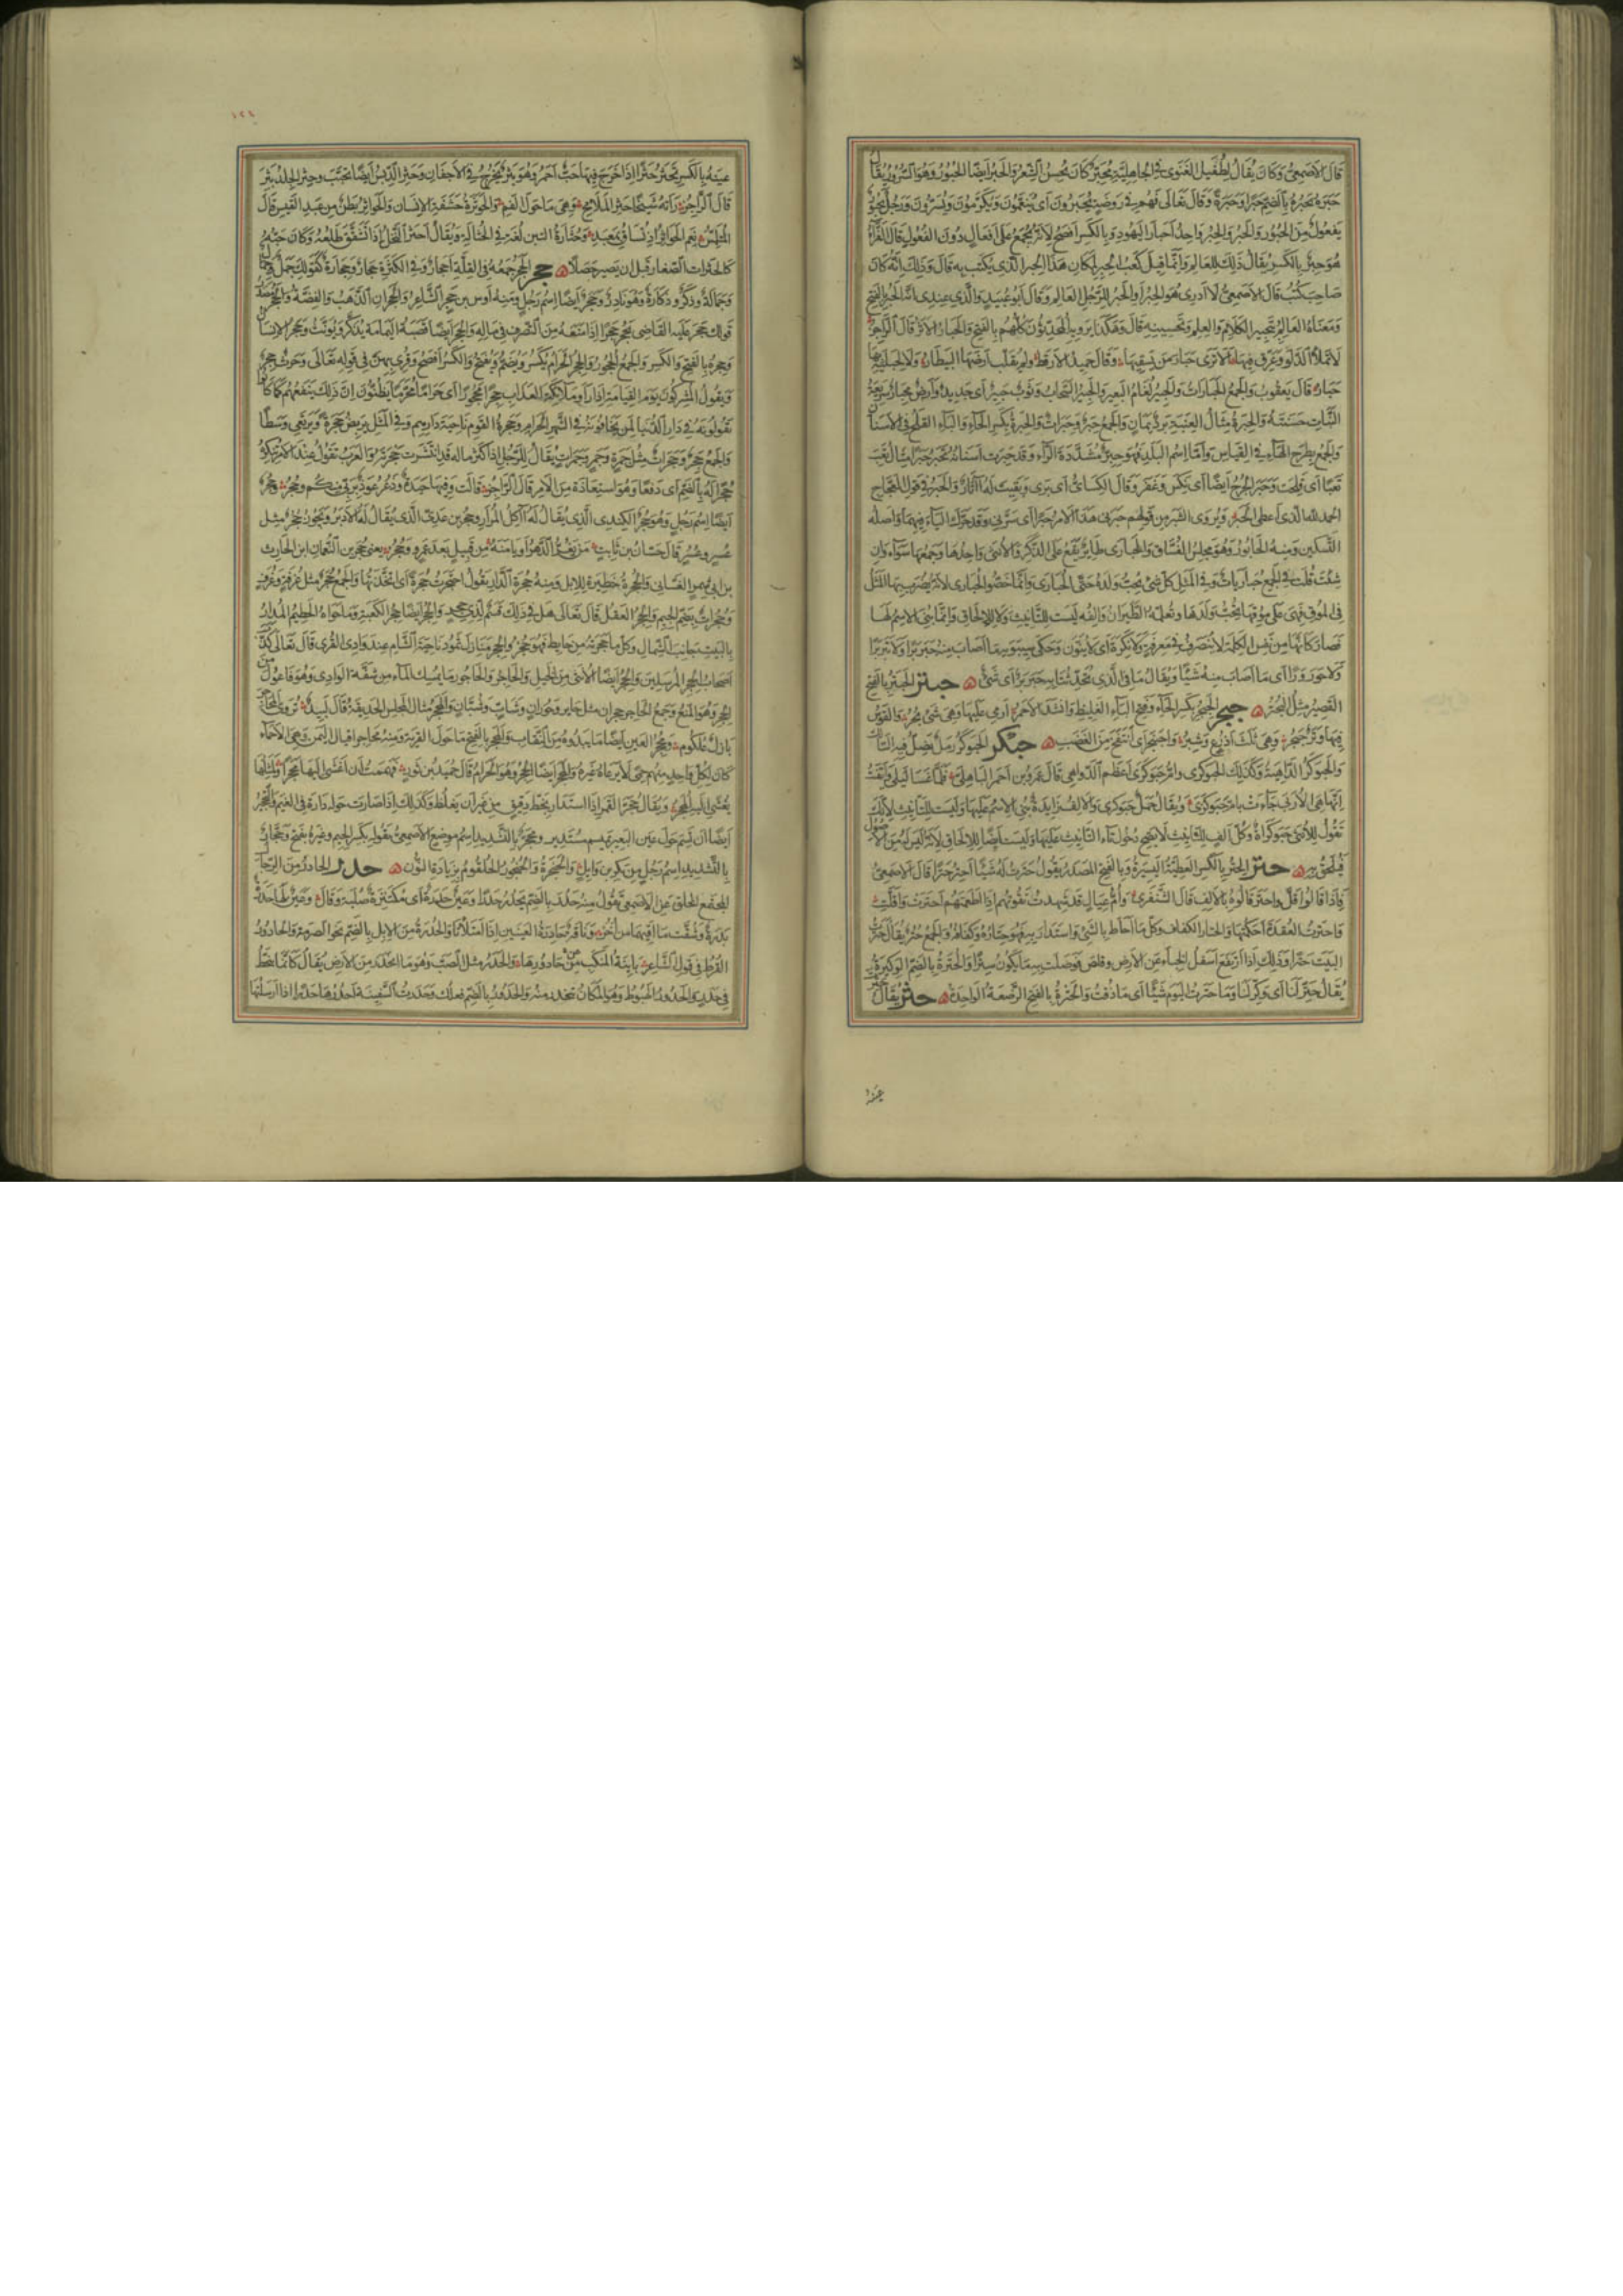 قال الاصمعى وكان يقال لطفيل الغنوى فى الجاهلية محبر لانه كان يحسن الشعر والحبر ايضا الحبور وهو السرور يقال
حبره يحبره بالضم حبرا وحبرة وقال تعالى فهم فى روضة يحبرون اى ينعمون ويكرمون ويسرون ورجل يحبور
يفعول من الحبور والحبر والحبر واحد احبار اليهود وبالكسر افصح لانه يجمع على افعال دون الفعول قال الفراء
هو حبر بالكسر يقال ذلك للعالم وانما قيل كعب الحبر لمكان هذا الحبر الذى يكتب به قال وذلك انه كان
صاحب كتب قال الاصمعى لا ادرى هو الحبر او الحبر للرجل العالم وقال ابو عبيد والذى عندى انه الحبر بالفتح
ومعناه العالم بتحبير الكلام والعلم وتحسينه قال وهكذا يرويه المحدثون كلهم بالفتح والحبار الاثر قال الراجز
لا تملا الدلو وعرق فيها الا ترى حبار من يسقيها وقال حميد الارقط ولم يقلب ارضها البيطار ولا لحبليه بها
حبار قال يعقوب والجمع الحبارات والحبير لغام البعير والحبير السحاب وثوب حبير اى جديد وارض محبار سريعة
النبات حسنته والحبرة مثال العنبة برد يمان والجمع حبر وحبرات والحبرة بكسر الحاء والباء القلح فى الاسنان
والجمع بطرح الهاء فى القياس واما اسم البلد فهو حبر مشددة الراء وقد حبرت اسنانه تحبر حبرا مثال تعب
تعبا اى قلحت وحبر الجرح ايضا اى نكس وغفر وقال الكسائى اى برى وبقيت له اثار والحبر فى قول العجاج
الحمد لله الذى اعطى الحبر ويروى الشبر من قولهم حبرنى هذا الامر حبرا اى سرنى وقد حرك الباء فيهما واصله
التسكين ومنه الحابور وهو مجلس الفساق والحبارى طاير يقع على الذكر والانثى واحدها وجمعها سواء وان
شئت قلت فى الجمع حباريات وفى المثل كل شئ يحب ولده حتى الحبارى وانما خصوا الحبارى لانه يضرب بها المثل
فى الموق فهى على موقها تحب ولدها وتعلمه الطيران والفه ليست للتانيث ولا للالحاق وانما بنى الاسم لها
فصارت كانها من نفس الكلمة لا ينصرف فى معرفة ولا نكرة اى لا ينون وحكى سيبويه ما اصاب منه حبربرا ولا تبربرا
ولا حورورا اى ما اصاب منه شيئا ويقال ما فى الذى تحدثنا به حبربر اى شئ حبتر الحبتر بالفتح
القصير مثل البحتر حبجر الحبجر بكسر الحاء وفتح الباء الغليظ وانشد الاحمر ارمى عليها وهى شئ بجر والقوس
فيها وتر حبجر وهى ثلث اذرع وشبر واحبنجر اى انتفخ من الغضب حبكر الحبوكر رمل يضل فيه السالك
والحبوكر الداهية وكذلك الحبوكرى وام حبوكرى اعظم الدواهى قال عمرو بن احمر الباهلى فلما غسا ليلى وايقنت
انها هى الاربى جاءت بام حبوكرى ويقال جمل حبوكرى والالف زايدة بنى الاسم عليها وليست للتانيث لانك
تقول للانثى حبوكراة وكل الف للتانيث لا يصح دخول تاء التانيث عليها وليست ايضا للالحاق لانه ليس له مثال من الاصول
فيلحق به حتر الحتر بالكسر العطية اليسيرة وبالفتح المصدر يقول حترت له شيئا احتر حترا قال الاصمعى
فاذا قالوا اقل واحتر قالوه بالالف قال الشنفرى وام عيال قد شهدت تقوتهم اذا اطعمتهم احترت واقلت
واحترت العقدة احكمتها والحتار الكفاف وكل ما احاط بالشئ واستدار به فهو حتاره وكفافه والجمع حتر يقال حترت
البيت حترا وذلك اذا ارتفع اسفل الخباء عن الارض وقلص فوصلت به ما يكون سترا والحترة بالضم الوكيرة
يقال حتر لنا اى وكر لنا وما حترت اليوم شيئا اى ما ذقت والحترة بالفتح الرضعة الواحدة حثر يقال حثرت
عينه
١٢٤
عينه بالكسر تحثر حثرا اذا خرج فيها حب احمر وهو بثر يخرج فى الاجفان وحثر الدبس ايضا تحبب وحثر الجلد بثر
قال الراجز راته شيخا حثر الملامج وهى ما حول الفم والحوثرة حشفة الانسان والحواثر بطن من عبد القيس قال
المتلمس نعم الحواثر اذ تساق بمعبد وحثارة التبن لغة فى الحثالة ويقال احثر النخل اذا تشقق طلعه وكان حبه
كالحثرات الصغار قبل ان يصير حصلا حجر الحجر جمعه فى القلة احجار وفى الكثرة حجار وحجارة كقولك جمل وجمال
وجمالة وذكر وذكارة وهو نادر وحجر ايضا اسم رجل ومنه اوس بن حجر الشاعر والحجران الذهب والفضة والحجر مصدر
قولك حجر عليه القاضى يحجر حجرا اذا منعه من التصرف فى ماله والحجر ايضا قصبة اليمامة يذكر ويونث وحجر الانسان
وحجره بالفتح والكسر والجمع الحجور والحجر الحرام يكسر ويضم ويفتح والكسر افصح وقرى بهن فى قوله تعالى وحرث حجر
ويقول المشركون يوم القيامة اذا راوا ملائكة العذاب حجرا محجورا اى حراما محرما يظنون ان ذلك ينفعهم كما كانوا
يقولونه فى دار الدنيا لمن يخافونه فى الشهر الحرام وحجرة القوم ناحية دارهم وفى المثل يربض حجرة ويرتعى وسطا
والجمع حجر وحجرات مثل جمرة وجمر وجمرات يقال للرجل اذا كثر ماله قد انتشرت حجرته والعرب تقول عند الامر تنكره
حجرا له بالضم اى دفعا وهو استعاذة من الامر قال الراجز قالت وفيها حيدة وذعر عوذ بربى منكم وحجر وحجر
ايضا اسم رجل وهو حجر الكندى الذى يقال له آكل المرار وحجر بن عدى الذى يقال له الادبر ويجوز حجر مثل
عسر وعسر قال حسان بن ثابت من يغر الدهر او يامنه من قبيل بعد عمرو وحجر يعنى حجر بن النعمان ابن الحارث
بن ابى شمر الغسانى والحجرة حظيرة للابل ومنه حجرة الدار يقول احتجرت حجرة اى اتخذتها والجمع حجر مثل غرفة وغرف
وحجرات بضم الجيم والحجر العقل قال تعالى هل فى ذلك قسم لذى حجر والحجر ايضا حجر الكعبة وما حواه الحطيم المدار
بالبيت جانب الشمال وكل ما حجرته من حايط فهو حجر والحجر منازل ثمود ناحية الشام عند وادى القرى قال تعالى كذب
اصحاب الحجر المرسلين والحجر ايضا الانثى من الخيل والحاجر والحاجور ما يمسك الماء من شفة الوادى وهو فاعول من
الحجر وهو المنع وجمع الحاجر حجران مثل حاير وحوران وشاب وشبان والمحجر مثال المجلس الحديقة قال لبيد تروى المحاجر
بازل علكوم ومحجر العين ايضا ما يبدو من النقاب والمحجر بالفتح ما حول القرية ومنه محاجر اقيال اليمن وهى الاحماء
كان لكل واحد منهم حمى لا يرعاه غيره والمحجر ايضا الحجر وهو الحرام قال حميد بن ثور فهممت ان اغشى اليها محجرا ولمثلها
يغشى اليه المحجر ويقال حجر القمر اذا استدار بخط دقيق من غير ان يغلظ وكذلك اذا صارت حوله دارة فى الغيم والتحجير
ايضا ان تسم حول عين البعير بميسم مستدير ومحجر بالتشديد اسم موضع الاصمعى يقوله بكسر الجيم وغيره بفتح وحجار
بالتشديد اسم رجل من بكر بن وايل والحنجرة والحنجور الحلقوم بزيادة النون حدر الحادر من الرجال
المجتمع الخلق عن الاصمعى تقول منه حدر بالضم يحدر حدرا وعين حدرة اى مكتنزة صلبة وقال وعين لها حدرة
بدرة وشقت ماقيهما من اخر وناقة حادرة العينين اذا امتلاتا والحدرة من الابل بالضم نحو الصرمة والحادور
القرط فى قول الشاعر باينة المنكب من حادورها والحدر مثل الصبب وهو ما انحدر من الارض يقال كانما ينحط
فى حدر والحدور الهبوط وهو المكان تنحدر منه والحدور بالضم فعلك وحدرت السفينة احدرها حدرا اذا ارسلتها